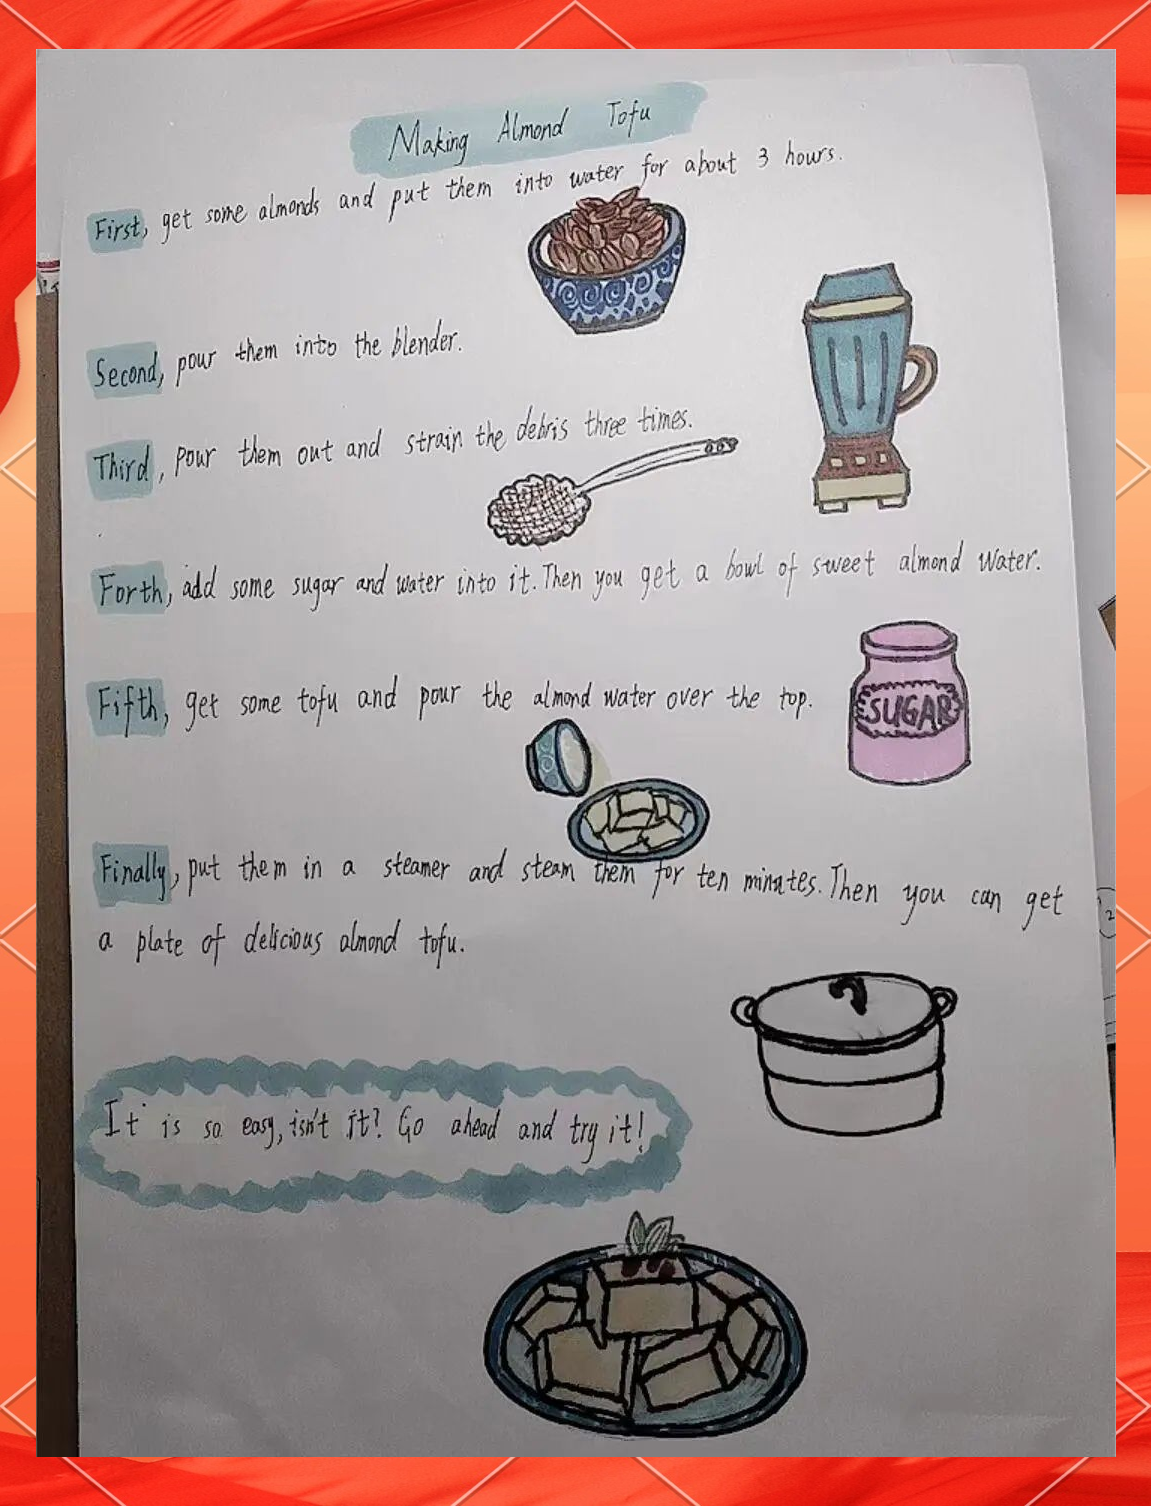 Making Almond Tofu
First, get some almonds and put them into water for about 3 hours.
Second, pour them into the blender.
Third, pour them out and strain the debris three times.
Forth, add some sugar and water into it. Then you get a bowl of sweet almond water.
SUGAR
Fifth, get some tofu and pour the almond water over the top.
Finally, put them in a steamer and steam them for ten minutes. Then you can get
a plate of delicious almond tofu.
It is so easy, isn't it? Go ahead and try it!
2